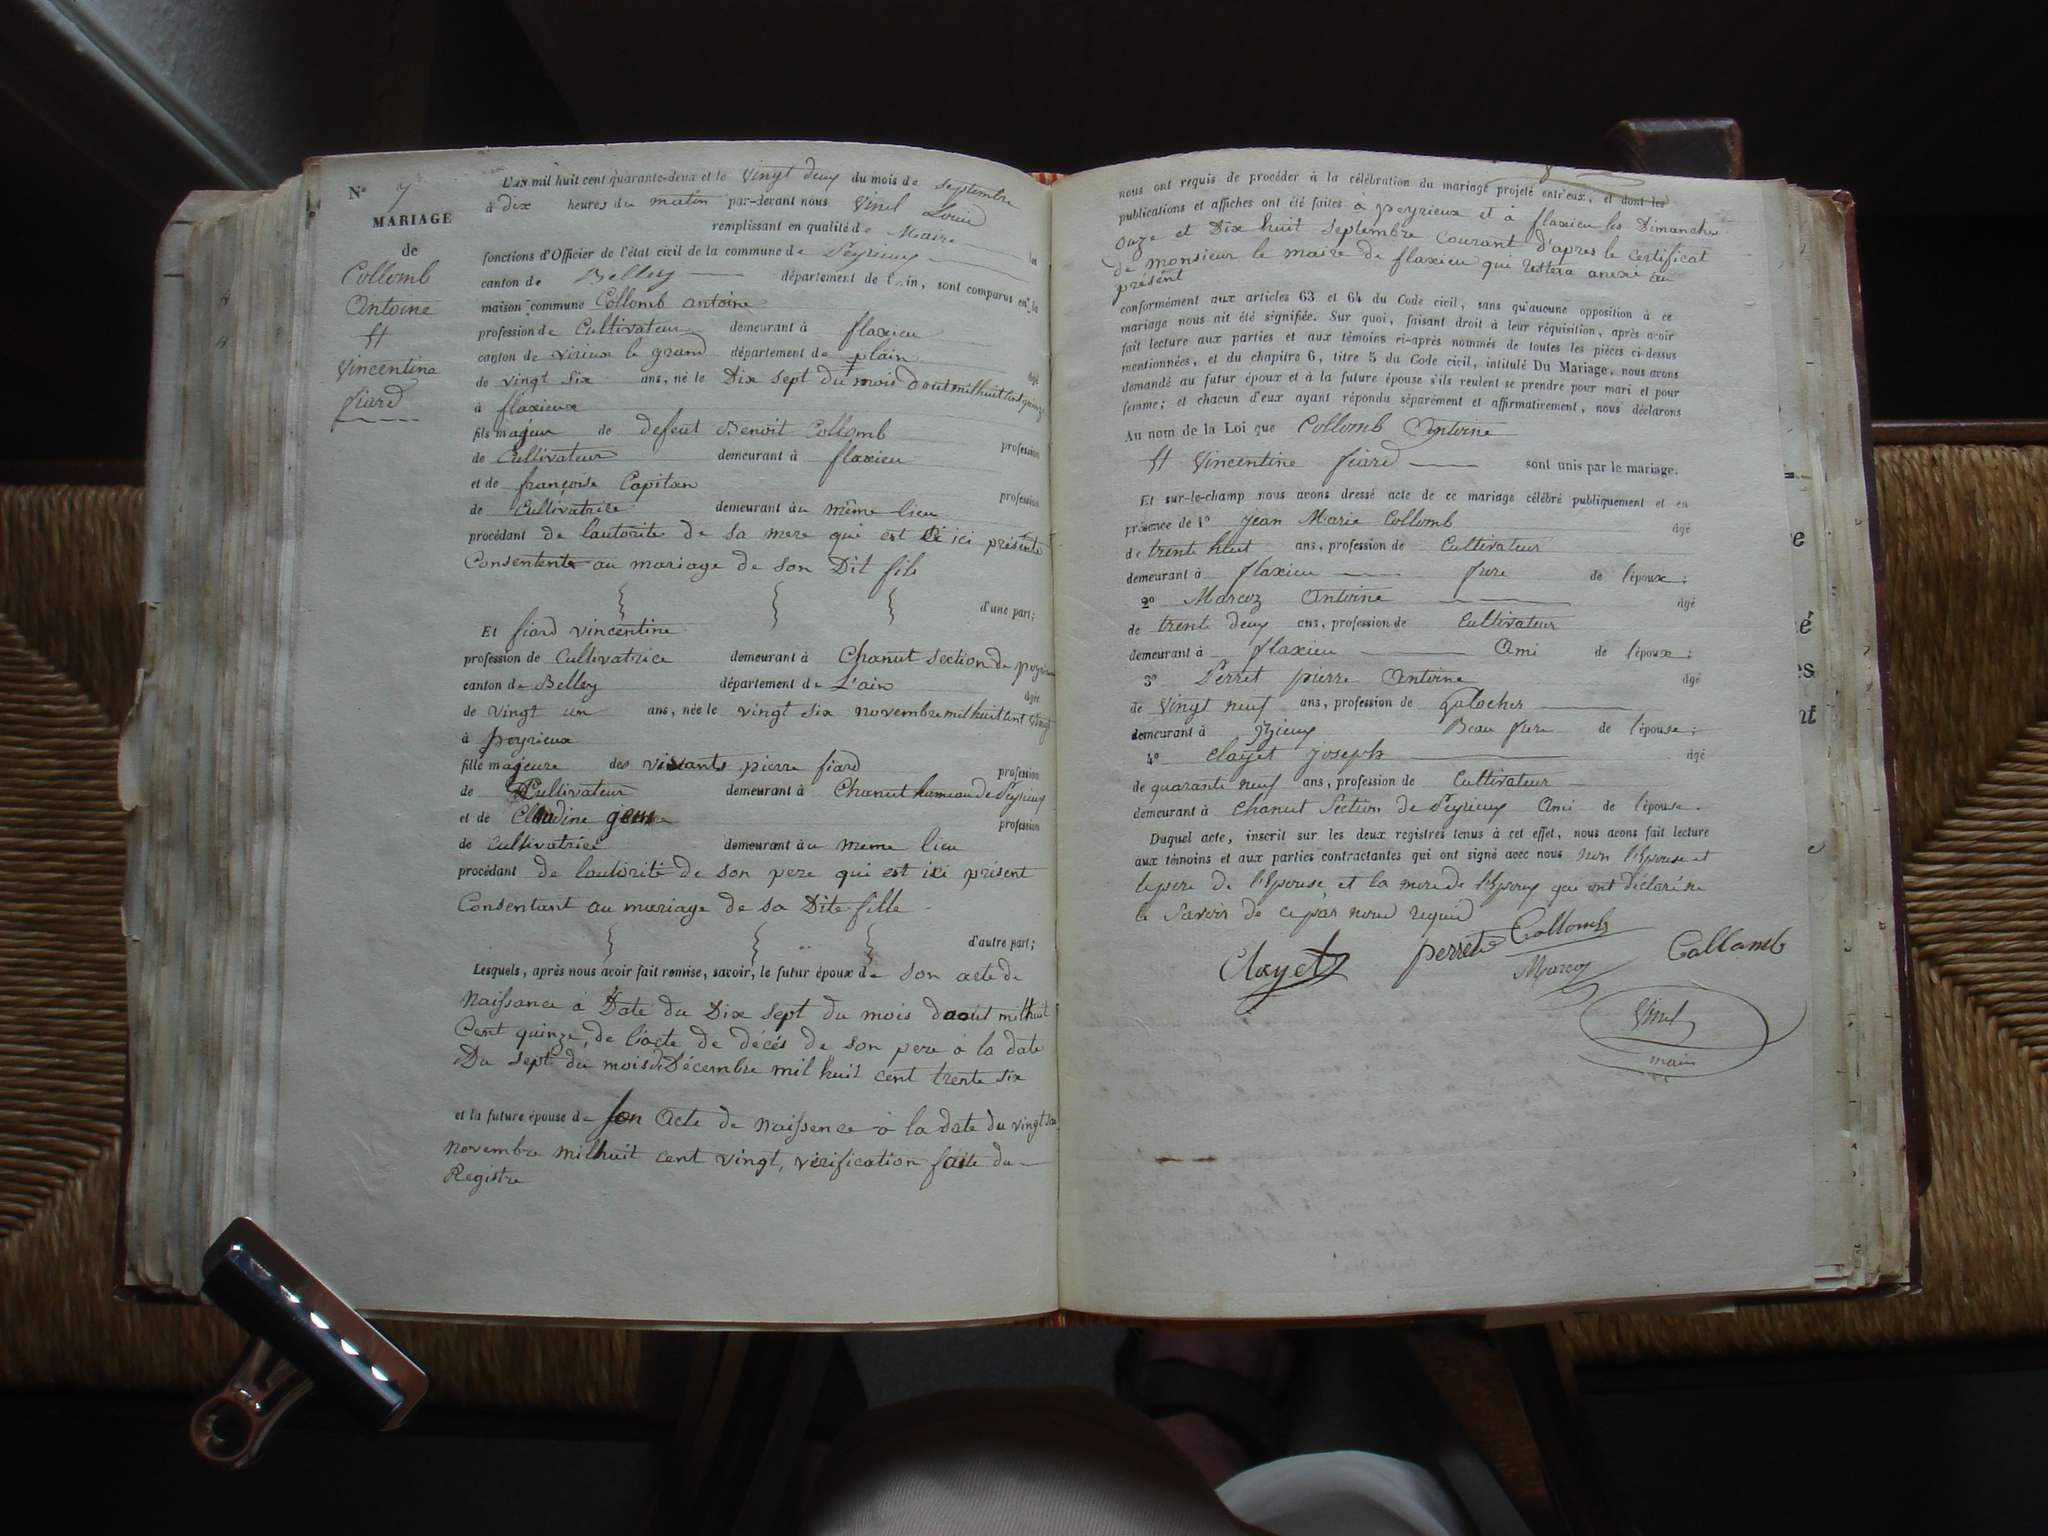 Nº 7
MARIAGE
de
Collomb
Antoine
et
Vincentine
fiard
L'AN mil huit cent quarante-deux et le vingt deux du mois de septembre
à dix heures du matin par-devant nous Vinel Louis
remplissant en qualité de Maire les
fonctions d'Officier de l'état civil de la commune de Peyrieux
canton de Belley département de l'Ain, sont comparus en la
maison commune Collomb antoine
profession de Cultivateur demeurant à flaxieu
canton de virieux le grand département de lain âgé
de vingt six ans, né le Dix sept du mois Daout mil huit cent quinze
à flaxieux
fils majeur de defeut Benoit Collomb profession
de Cultivateur demeurant à flaxieu
et de françoise Capitan profession
de Cultivatrice demeurant au même lieu
procédant de lautorité de sa mere qui est ici présente
Consentente au mariage de son Dit fils
d'une part;
Et fiard vincentine
profession de Cultivatrice demeurant à Chanut section de peyrieux
canton de Belley département de L'ain âgée
de vingt un ans, née le vingt six novembre mil huit cent vingt
à peyrieux
fille majeure des vivants pierre fiard profession
de Cultivateur demeurant à Chanut hameau de Peyrieux
et de Claudine profession
de Cultivatrice demeurant au meme lieu
procédant de lautorité de son pere qui est ici présent
Consentant au mariage de sa Dite fille
d'autre part;
Lesquels, après nous avoir fait remise, savoir, le futur époux de son acte de
Naissance à Date du Dix sept du mois daout mil huit
Cent quinze, de l'acte de décés de son pere à la date
Du sept du mois de Décembre mil huit cent trente six
et la future épouse de son Acte de Naissence à la date du vingt six
novembre mil huit cent vingt, vérification faite du
Registre
nous ont requis de procéder à la célébration du mariage projeté entr'eux, et dont les
publications et affiches ont été faites à peyrieux et à flaxieu les Dimanches
Onze et Dix huit septembre courant d'apres le certificat
de monsieur le maire de flaxieu qui restera anexé au
présent
conformément aux articles 63 et 64 du Code civil, sans qu'aucune opposition à ce
mariage nous ait été signifiée. Sur quoi, faisant droit à leur réquisition, après avoir
fait lecture aux parties et aux témoins ci-après nommés de toutes les pièces ci-dessus
mentionnées, et du chapitre 6, titre 5 du Code civil, intitulé Du Mariage, nous avons
demandé au futur époux et à la future épouse s'ils veulent se prendre pour mari et pour
femme; et chacun d'eux ayant répondu séparément et affirmativement, nous déclarons
Au nom de la Loi que Collomb Antoine
et Vincentine fiard sont unis par le mariage.
Et sur-le-champ nous avons dressé acte de ce mariage célébré publiquement et en
présence de 1º Jean Marie Collomb âgé
de trente huit ans, profession de Cultivateur
demeurant à flaxieu frere de l'époux;
2º Marcoz Antoine âgé
de trente deux ans, profession de Cultivateur
demeurant à flaxieu Ami de l'époux;
3º Perret pierre Antoine âgé
de vingt neuf ans, profession de Galocher
demeurant à Yzieux Beau frere de l'épouse;
4º Clayet Joseph âgé
de quarante neuf ans, profession de Cultivateur
demeurant à Chanut Section de Peyrieux Ami de l'épouse.
Duquel acte, inscrit sur les deux registres tenus à cet effet, nous avons fait lecture
aux témoins et aux parties contractantes qui ont signé avec nous non l'Epouse et
le pere de l'Epouse et la mere de l'Epoux qui ont déclaré ne
le Savoir de ce par nous requis
Clayet Perret Collomb Collomb
Marcoz
Vinel
maire